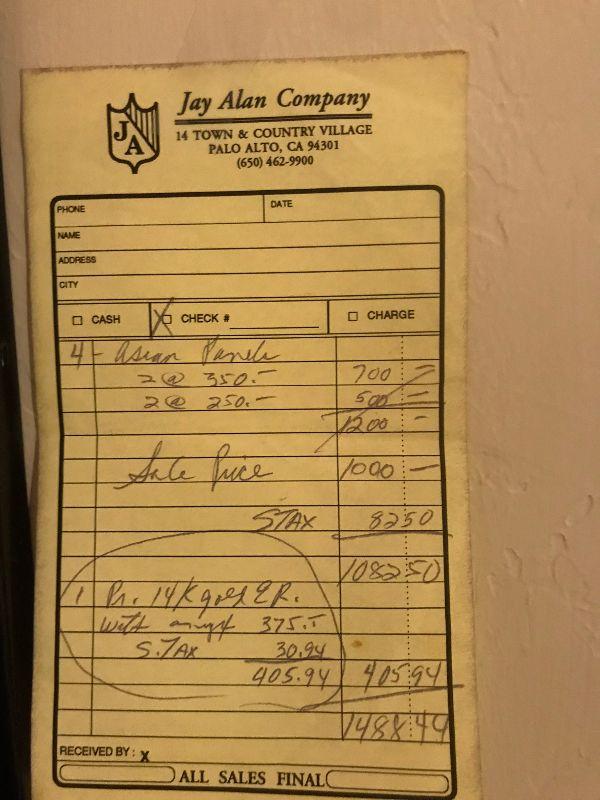 JA
Jay Alan Company
14 TOWN & COUNTRY VILLAGE
PALO ALTO, CA 94301
(650) 462-9900
PHONE DATE
NAME
ADDRESS
CITY
CASH X CHECK # CHARGE
4 - Asian Panels
2 @ 350.- 700 -
2 @ 250.- 500 -
1200 -
Sale Price 1000 -
S TAX 82 50
1082 50
1 Pr. 14K gold ER.
with 375.-
S. TAX 30.94
405.94 405.94
1488.44
RECEIVED BY: X
ALL SALES FINAL